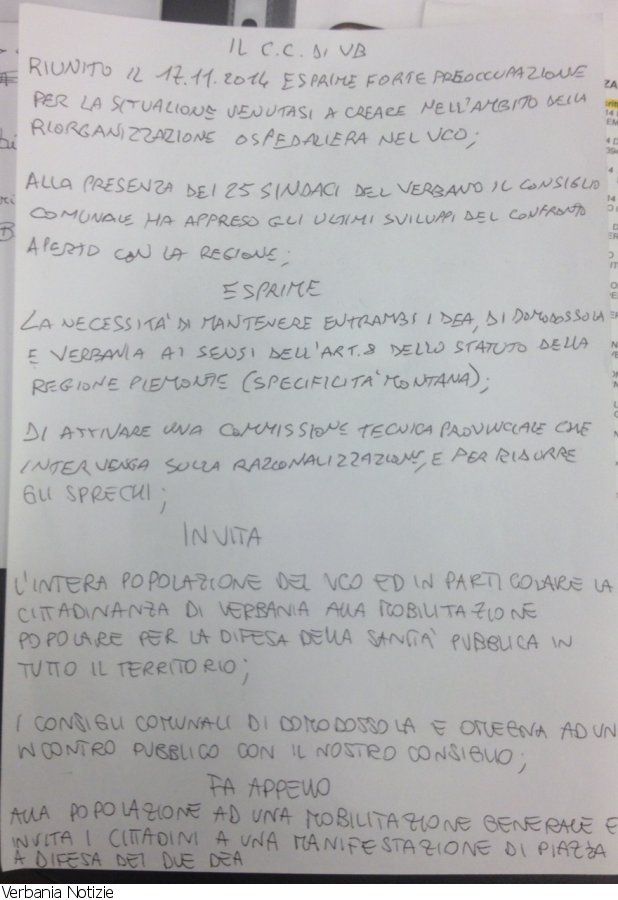 IL C.C. DI VB
RIUNITO IL 17.11.2014 ESPRIME FORTE PREOCCUPAZIONE
PER LA SITUAZIONE VENUTASI A CREARE NELL'AMBITO DELLA
RIORGANIZZAZIONE OSPEDALIERA NEL VCO;
ALLA PRESENZA DEI 25 SINDACI DEL VERBANO IL CONSIGLIO
COMUNALE HA APPRESO GLI ULTIMI SVILUPPI DEL CONFRONTO
APERTO CON LA REGIONE;
ESPRIME
LA NECESSITA' DI MANTENERE ENTRAMBI I DEA, DI DOMODOSSOLA
E VERBANIA AI SENSI DELL'ART.8 DELLO STATUTO DELLA
REGIONE PIEMONTE (SPECIFICITA' MONTANA);
DI ATTIVARE UNA COMMISSIONE TECNICA PROVINCIALE CHE
INTERVENGA SULLA RAZIONALIZZAZIONE, E PER RIDURRE
GLI SPRECHI;
INVITA
L'INTERA POPOLAZIONE DEL VCO ED IN PARTICOLARE LA
CITTADINANZA DI VERBANIA ALLA MOBILITAZIONE
POPOLARE PER LA DIFESA DELLA SANITA' PUBBLICA IN
TUTTO IL TERRITORIO;
I CONSIGLI COMUNALI DI DOMODOSSOLA E OMEGNA AD UN
INCONTRO PUBBLICO CON IL NOSTRO CONSIGLIO;
FA APPELLO
ALLA POPOLAZIONE AD UNA MOBILITAZIONE GENERALE E
INVITA I CITTADINI A UNA MANIFESTAZIONE DI PIAZZA
A DIFESA DEI DUE DEA
Verbania Notizie